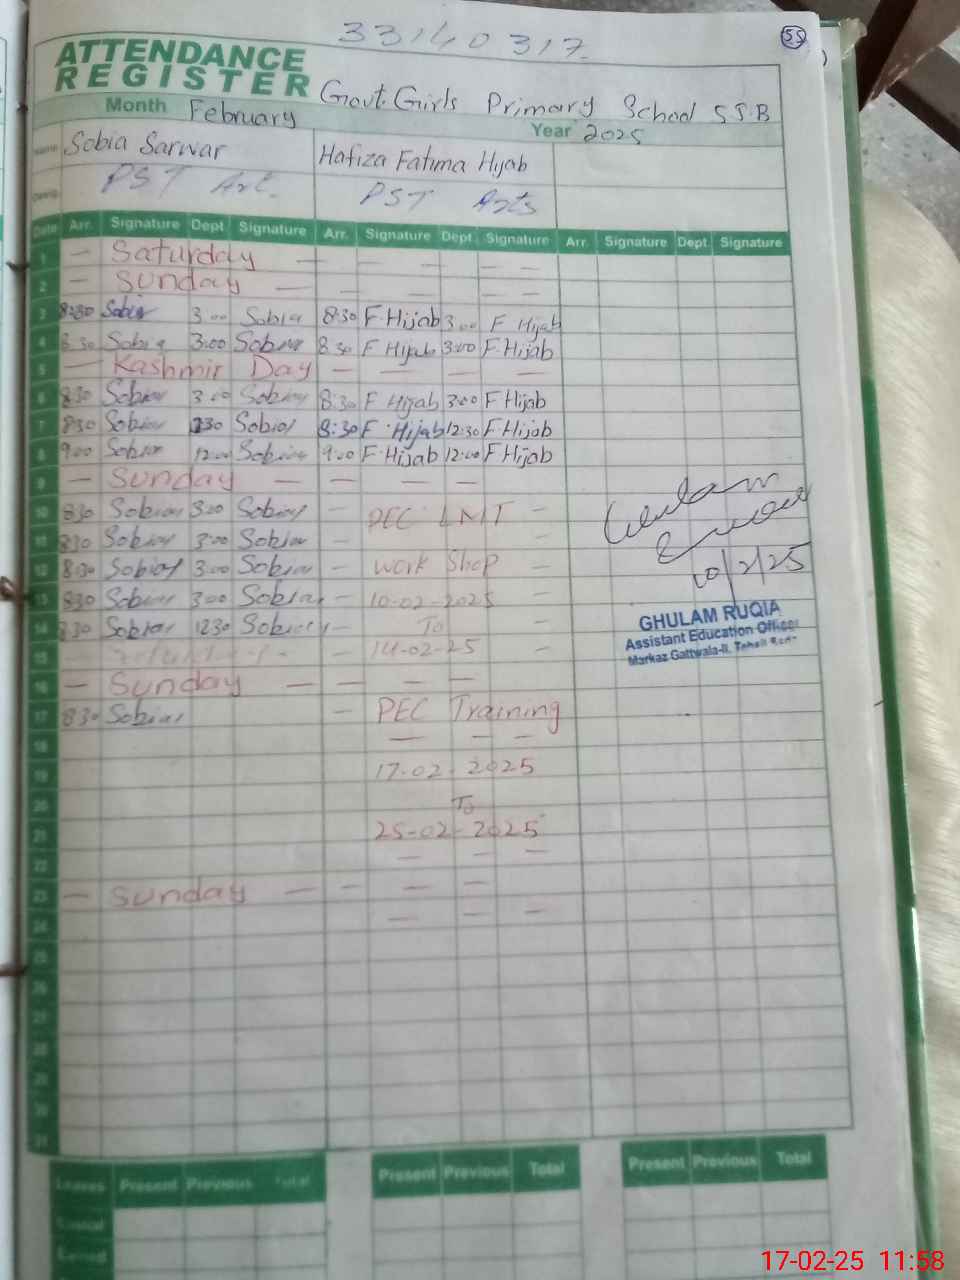 33140317
55
ATTENDANCE
REGISTER Govt. Girls Primary School S.S.B
Month February Year 2025
Name Sobia Sarwar Hafiza Fatima Hijab
PST Art. PST Arts
Date Arr. Signature Dept Signature Arr. Signature Dept. Signature Arr. Signature Dept. Signature
1 — Saturday — — — — — —
2 — Sunday — — — — — —
3 8:30 Sobia 3:00 Sobia 8:30 F Hijab 3:00 F Hijab
4 8:30 Sobia 3:00 Sobia 8:30 F Hijab 3:00 F. Hijab
5 — Kashmir Day — — — —
6 8:30 Sobia 3:00 Sobia 8:30 F Hijab 3:00 F Hijab
7 8:30 Sobia 1230 Sobia 8:30 F. Hijab 12:30 F. Hijab
8 9:00 Sobia 12:00 Sobia 9:00 F. Hijab 12:00 F Hijab
9 — Sunday — — — —
10 830 Sobia 3:00 Sobia — PEC LMT —
11 830 Sobia 3:00 Sobia — —
12 8:30 Sobia 3:00 Sobia — work Shop —
13 830 Sobia 3:00 Sobia — 10-02-2025 —
14 8:30 Sobia 1230 Sobia — To —
15 — 14-02-25 —
16 — Sunday — — — —
17 8:30 Sobia — PEC Training
18 — — —
19 17-02-2025
20 To
21 25-02-2025
22 — — —
23 — Sunday — — — —
24 — — —
25
26
27
28
29
30
31
Ghulam
10/2/25
GHULAM RUQIA
Assistant Education Officer
Markaz Gattwala-II,
Leaves Present Previous Total Present Previous Total Present Previous Total
Casual
Earned
17-02-25 11:58